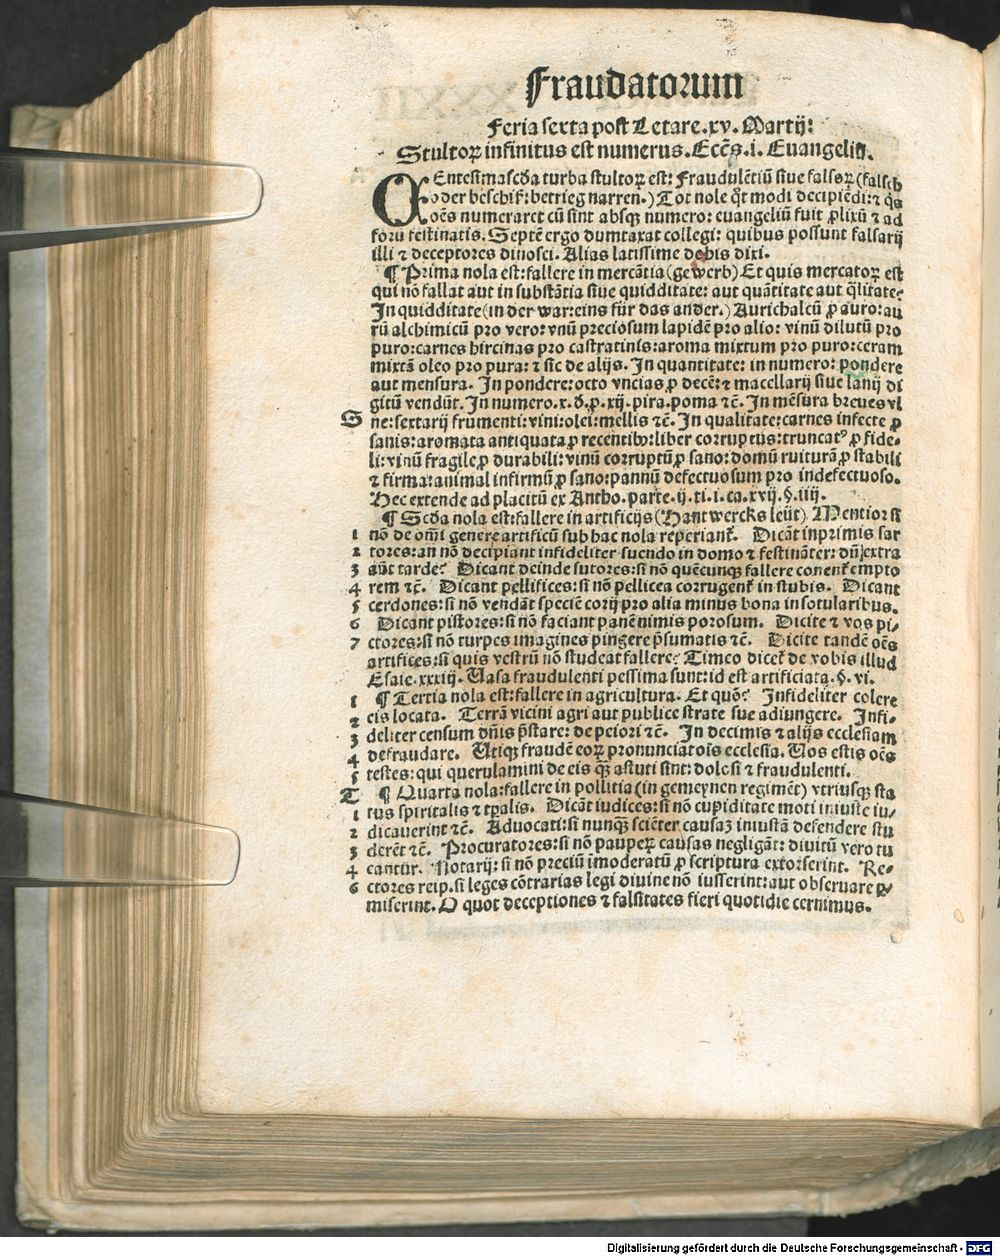 Fraudatoꝛum
Feria sexta post Letare.xv.Martij:
Stultoꝝ infinitus est numerus.Ecc̄s.i.Euangelin.
CEntesimascd̄a turba stultoꝝ est: Fraudulētiū siue falsoꝝ (falsch
oder beschiß:betrieg narren.) Tot nole qͦt modi decipiēdi:⁊ qͥs
oēs numeraret cū sint absqꝫ numero: euangeliū fuit ꝓlixū ⁊ ad
foꝛū festinatis. Septē ergo dumtaxat collegi: quibus possunt falsarij
illi ⁊ deceptoꝛes dinosci. Alias latissime debis dixi.
¶ Pꝛima nola est:fallere in mercātia (gewerb) Et quis mercatoꝝ est
qui nō fallat aut in substātia siue quidditate: aut quātitate aut q̄litate?
In quidditate (in der war:eins für das ander.) Aurichalcū ꝓ auro: au
rū alchimicū pꝛo vero: vnū pꝛeciosum lapidē pꝛo alio: vinū dilutū pꝛo
puro:carnes hircinas pꝛo castratinis:aroma mixtum pꝛo puro:ceram
mixtā oleo pꝛo pura: ⁊ sic de alijs. In quantitate: in numero: pondere
aut mensura. In pondere: octo vncias ꝓ decē: ⁊ macellarij siue lanij di
gitū vendūt. In numero.x.d̄.ꝓ.xij.pira.poma ⁊c̄. In mēsura bꝛeues vl
S ne:sextarij frumenti: vini: olei: mellis ⁊c̄. In qualitate:carnes infecte ꝓ
sanis: aromata antiquata ꝓ recentibꝰ: liber coꝛruptus: truncatꝰ ꝓ fide⸗
li: vinū fragile ꝓ durabili: vinū coꝛruptū ꝓ sano: domū ruiturā ꝓ stabili
⁊ firma: animal infirmū ꝓ sano: pannū defectuosum pꝛo indefectuoso.
Hec extende ad placitū ex Antho.parte.ij.ti.i.ca.xvij.§.iiij.
¶ Scd̄a nola est:fallere in artificijs (Hantwercks leüt) Mentioꝛ si
1 nō de om̄i genere artificū sub hac nola reperiant᷑. Dicāt inpꝛimis sar
2 toꝛes: an nō decipiant infideliter suendo in domo ⁊ festināter: dū extra
3 aūt tarde? Dicant deinde sutoꝛes: si nō quēcunqꝫ fallere conent᷑ empto
4 rem ⁊c̄. Dicant pellifices: si nō pellicea coꝛrugent᷑ in stubis. Dicant
5 cerdones: si nō vendāt speciē coꝛij pꝛo alia minus bona in sotularibus.
6 Dicant pistoꝛes: si nō faciant panē nimis poꝛosum. Dicite ⁊ vos pi⸗
7 ctoꝛes: si nō turpes imagines pingere p̄sumatis ⁊c̄. Dicite tandē oēs
artifices: si quis vestrū nō studeat fallere? Timeo dicet᷑ de vobis illud
Esaie.xxxiij. Uasa fraudulenti pessima sunt: id est artificiata.§.vi.
1 ¶ Tertia nola est:fallere in agricultura. Et quō? Infideliter colere
2 eis locata. Terrā vicini agri aut publice strate sue adiungere. Infi⸗
3 deliter censum dn̄is p̄stare: de peioꝛi ⁊c̄. In decimis ⁊ alijs ecclesiam
4 defraudare. Utiqꝫ fraudē eoꝝ pꝛonunciat ois ecclesia. Uos estis oēs
5 testes: qui querulamini de eis qꝙ astuti sint: dolosi ⁊ fraudulenti.
T ¶ Quarta nola:fallere in pollitia (in gemeynen regimēt) vtriusqꝫ sta
1 tus spiritalis ⁊ tp̄alis. Dicāt iudices: si nō cupiditate moti iniuste iu⸗
2 dicauerint ⁊c̄. Aduocati: si nunqꝫ sciēter causaꝫ iniustā defendere stu
3 derēt ⁊c̄. Pꝛocuratoꝛes: si nō pauperꝝ causas negligāt: diuitū vero tu
4 eantur. Notarij: si nō pꝛeciū īmoderatū ꝓ scriptura extoꝛserint. Re⸗
6 ctoꝛes reip. si leges cōtrarias legi diuine nō iusserint: aut obseruare ꝑ⸗
miserint. O quot deceptiones ⁊ falsitates fieri quotidie cernimus.
Digitalisierung gefördert durch die Deutsche Forschungsgemeinschaft - DFG